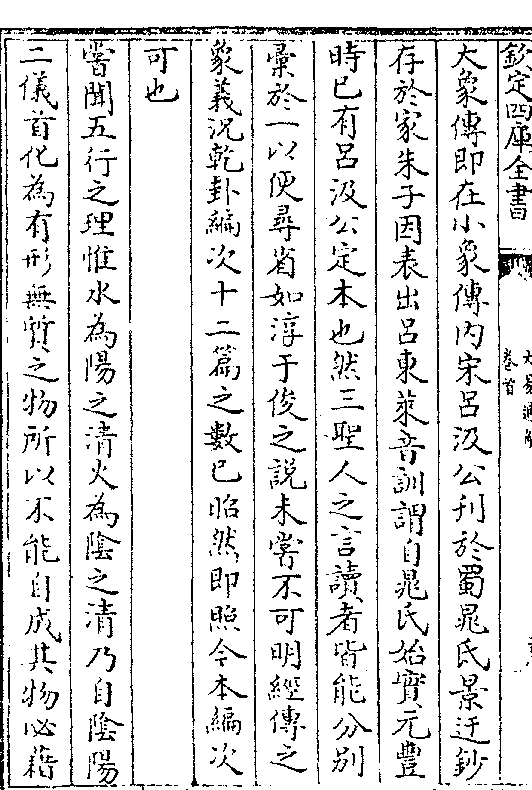 欽定四庫全書
卷首
大象傳即在小象傳内宋呂汲公刊於蜀晁氏景迂鈔
存於家朱子因表出呂東萊音訓謂自晁氏始實元豐
時已有呂汲公定本也然三聖人之言讀者皆能分别
彚於一以便尋省如淳于俊之説未嘗不可明經傳之
象義况乾卦編次十二篇之數已昭然即照今本編次
可也
嘗聞五行之理惟水為陽之清火為陰之清乃自陰陽
二儀首化為有形無質之物所以不能自成其物必藉